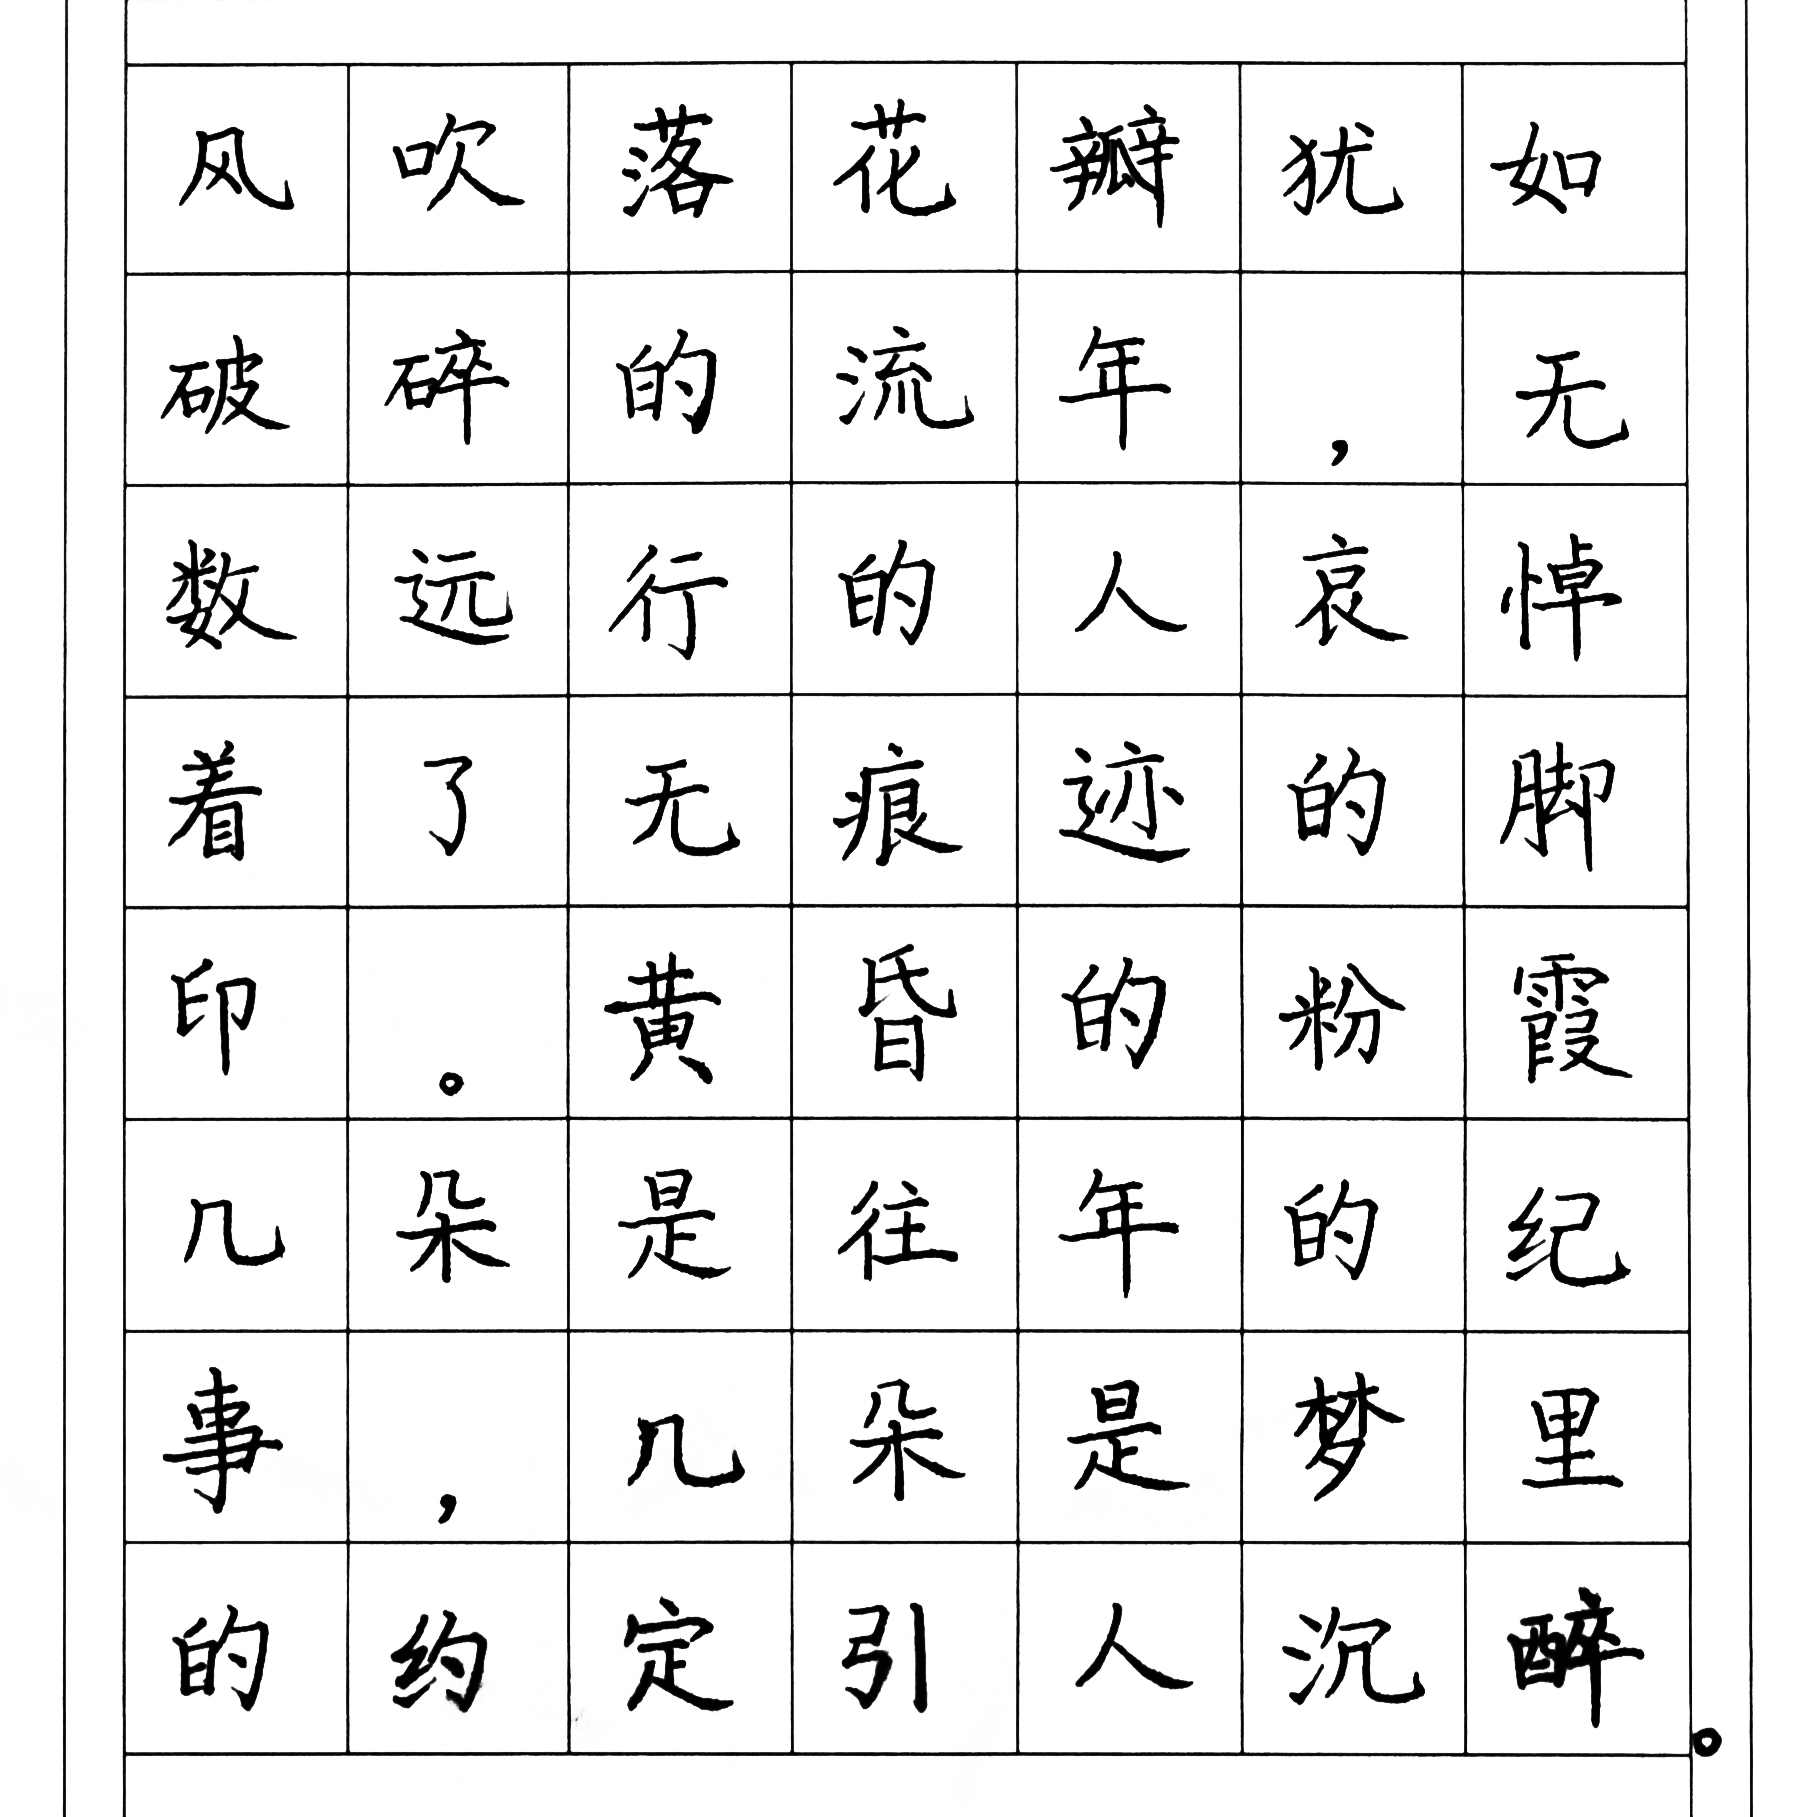 风吹落花瓣犹如
破碎的流年，无
数远行的人哀悼
着了无痕迹的脚
印。黄昏的粉霞
几朵是往年的纪
事，几朵是梦里
的约定引人沉醉。